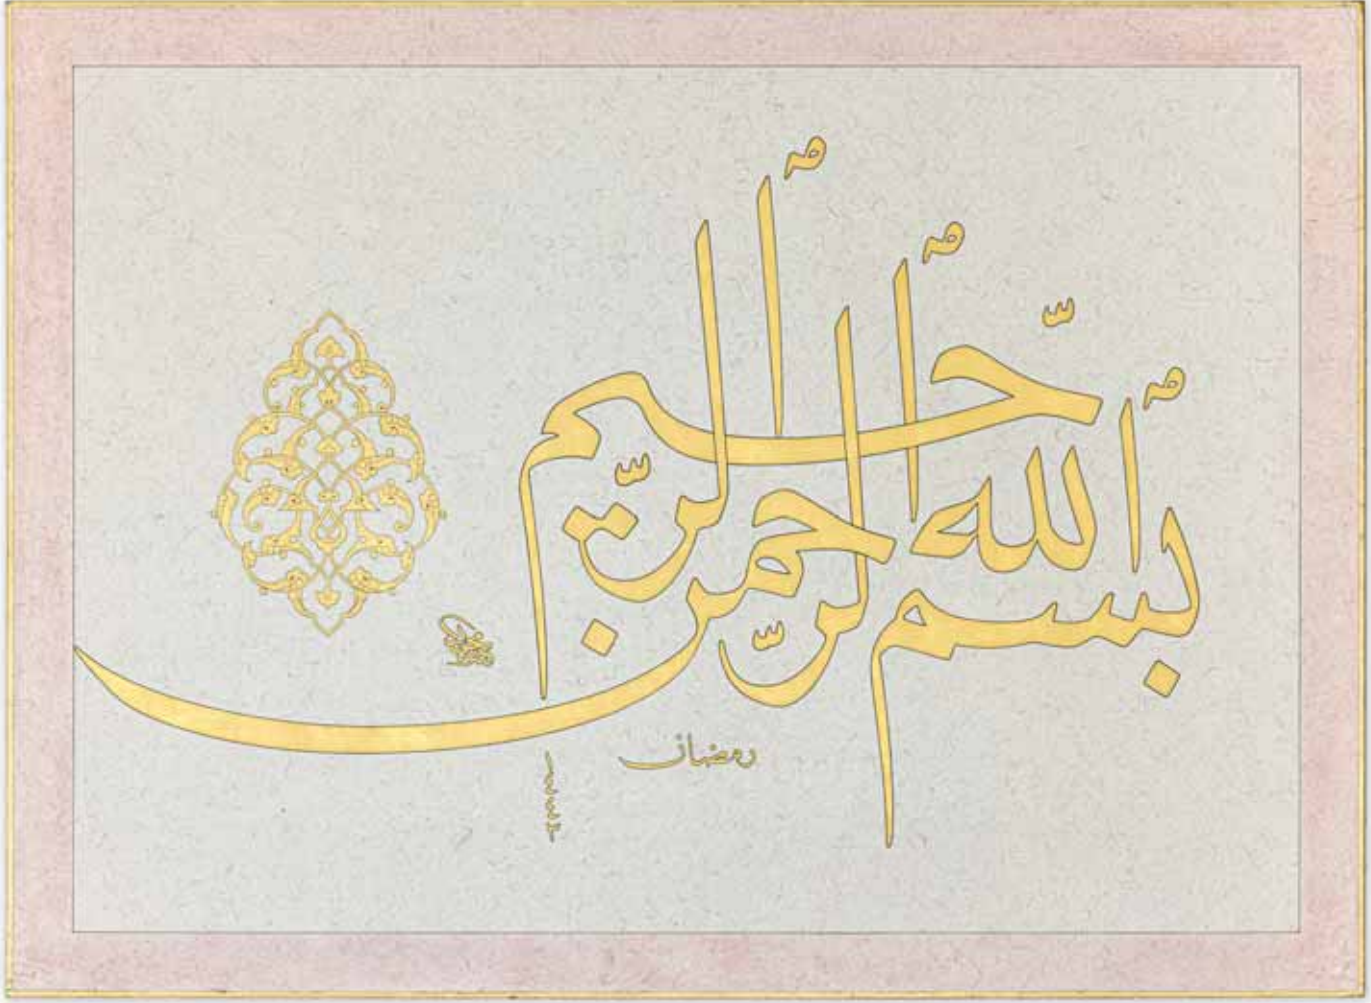 بسم ٱلله ٱلرّحمن ٱلرّحيم
رمضان